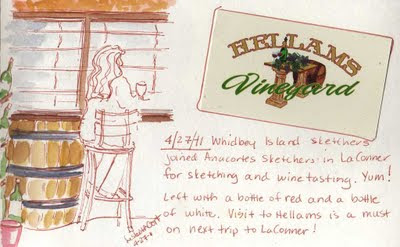 HELLAMS
Vineyard
4/27/11 Whidbey Island sketchers
joined Anacortes sketchers in LaConner
for sketching and wine tasting. Yum!
Left with a bottle of red and a bottle
of white. Visit to Hellams is a must
on next trip to LaConner!